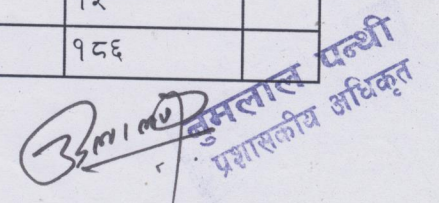 १८६
नुमलाल पन्थी
प्रशासकीय अधिकृत